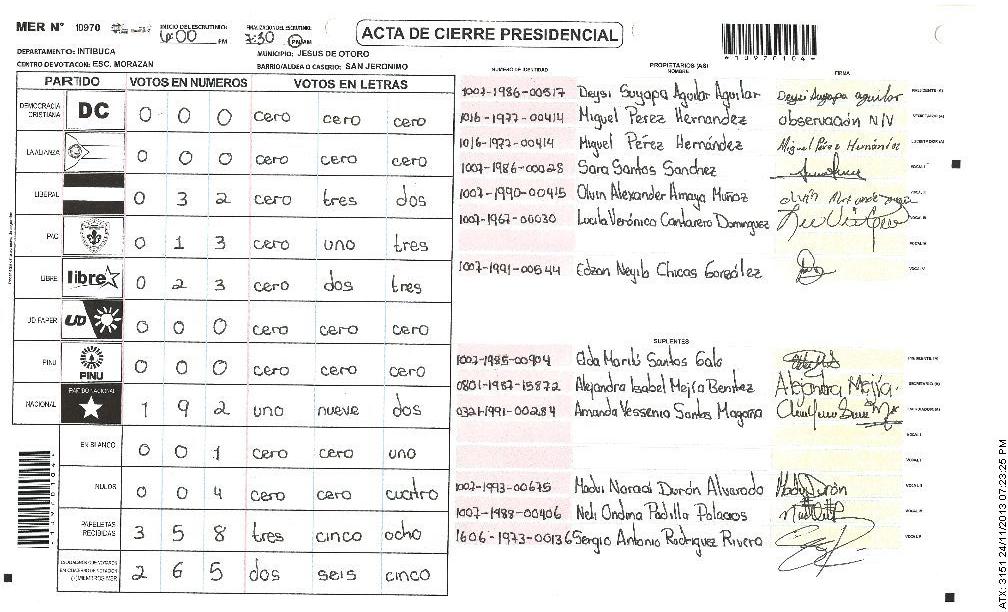 MER N° 10970 INICIO DEL ESCRUTINIO: 6:00 PM FINALIZACION DEL ESCRUTINIO: 7:30 PM
ACTA DE CIERRE PRESIDENCIAL
*10970104*
DEPARTAMENTO: INTIBUCA MUNICIPIO: JESUS DE OTORO
CENTRO DE VOTACON: ESC. MORAZAN BARRIO/ALDEA O CASERIO: SAN JERONIMO
PARTIDO VOTOS EN NUMEROS VOTOS EN LETRAS
DEMOCRACIA CRISTIANA DC 0 0 0 cero cero cero
LA ALIANZA 0 0 0 cero cero cero
LIBERAL 0 3 2 cero tres dos
PAC 0 1 3 cero uno tres
LIBRE libre 0 2 3 cero dos tres
UD-FAPER UD 0 0 0 cero cero cero
PINU PINU 0 0 0 cero cero cero
NACIONAL PARTIDO NACIONAL 1 9 2 uno nueve dos
EN BLANCO 0 0 1 cero cero uno
NULOS 0 0 4 cero cero cuatro
PAPELETAS RECIBIDAS 3 5 8 tres cinco ocho
MIEMBROS MER 2 6 5 dos seis cinco
NUMERO DE IDENTIDAD PROPIETARIOS (AS) NOMBRE FIRMA
1007-1986-00517 Deysi Suyapa Aguilar Aguilar Deysi Suyapa aguilar PRESIDENTE (A)
1016-1977-00414 Miguel Perez Hernandez observación N/V SECRETARIO (A)
1016-1977-00414 Miguel Pérez Hernández Miguel Pérez Hernández ESCRUTADOR (A)
1007-1986-00028 Sara Santos Sanchez VOCAL I
1007-1990-00415 Olvin Alexander Amaya Muñoz VOCAL II
1007-1967-00030 Lucila Verónica Cantarero Dominguez VOCAL III
VOCAL IV
1007-1991-00544 Edzon Neyib Chicas González VOCAL V
SUPLENTES
1007-1985-00904 Elda Marilú Santos Galo PRESIDENTE (A)
0801-1957-15872 Alejandra Isabel Mejía Benitez Alejandra Mejía. SECRETARIO (A)
0321-1991-00284 Amanda Yessenia Santos Magaña ESCRUTADOR (A)
VOCAL I
VOCAL II
1007-1993-00675 Madui Noradi Durón Alvarado Mady Durón VOCAL III
1007-1988-00406 Neli Ondina Padilla Palacios VOCAL IV
1606-1973-00136 Sergio Antonio Rodriguez Rivera VOCAL V
*10970104*
ATX: 3151 24/11/2013 07:23:25 PM